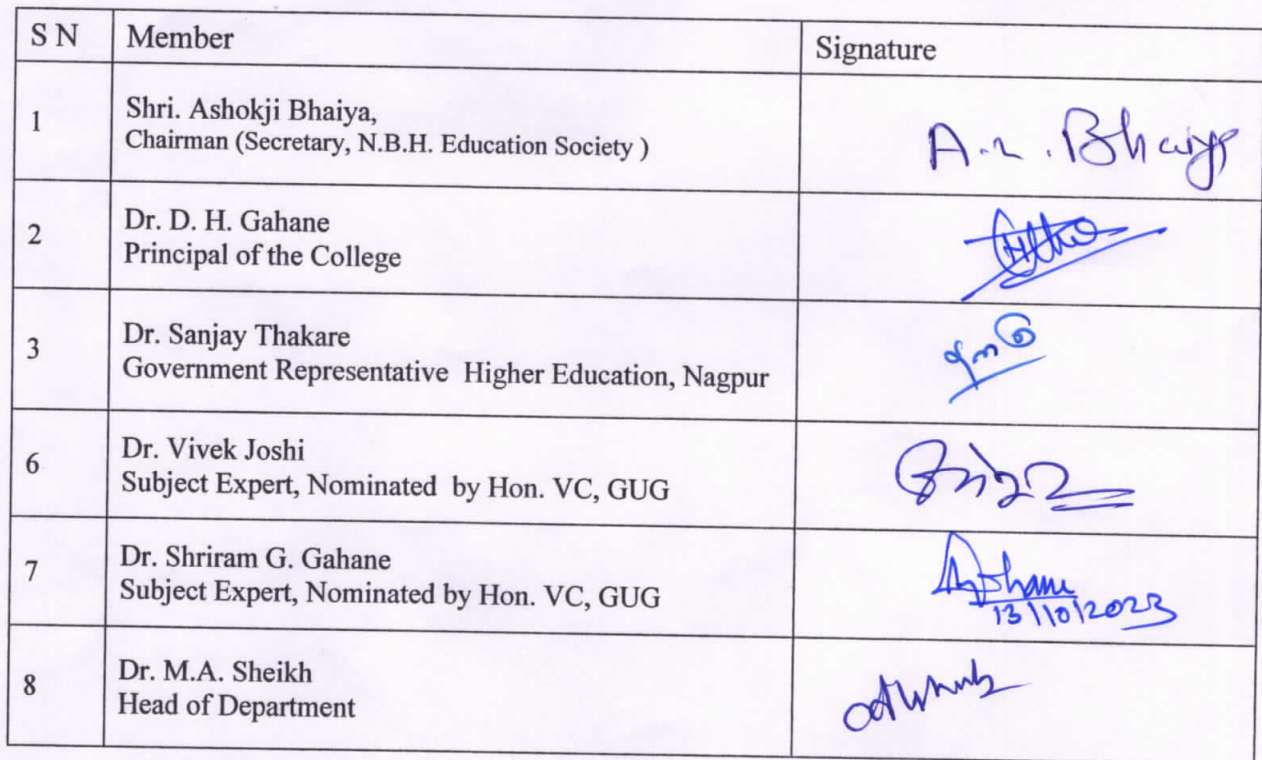 S N Member Signature
1 Shri. Ashokji Bhaiya,
Chairman (Secretary, N.B.H. Education Society )
A.n. Bhaiya
2 Dr. D. H. Gahane
Principal of the College
3 Dr. Sanjay Thakare
Government Representative Higher Education, Nagpur
6 Dr. Vivek Joshi
Subject Expert, Nominated by Hon. VC, GUG
7 Dr. Shriram G. Gahane
Subject Expert, Nominated by Hon. VC, GUG
13/10/2023
8 Dr. M.A. Sheikh
Head of Department